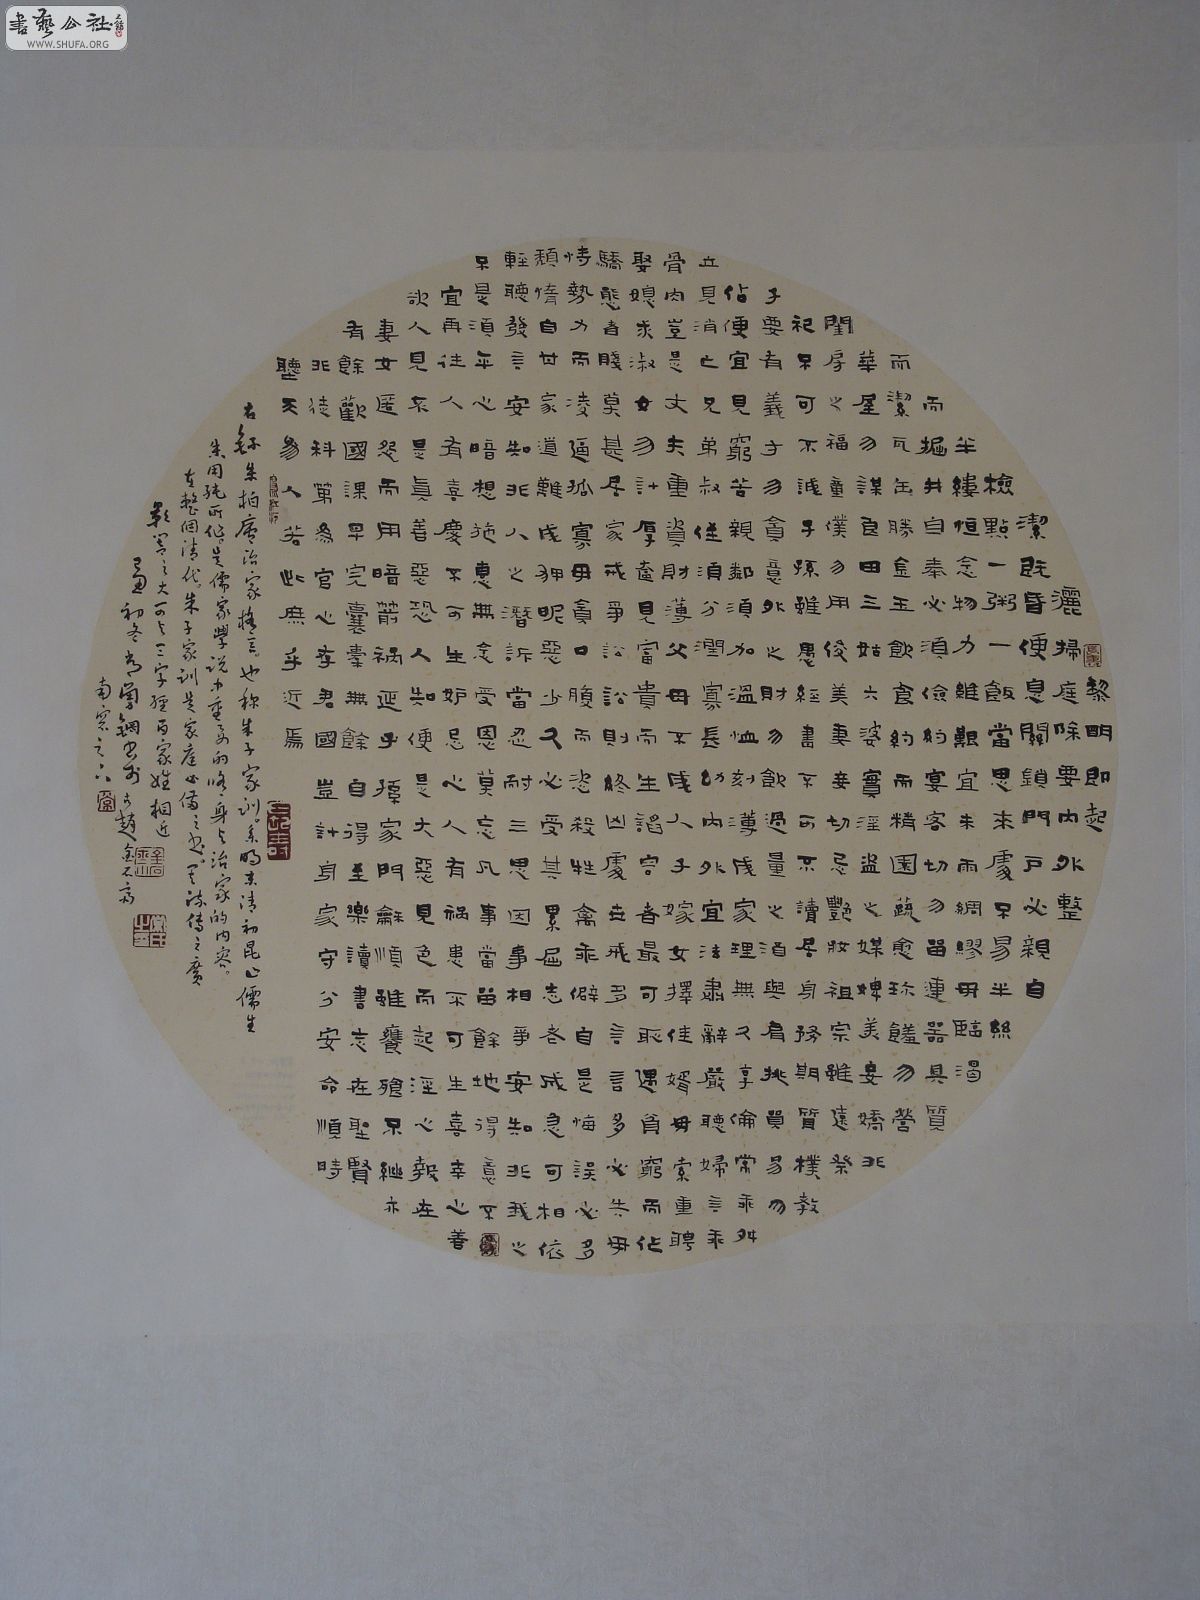 書藝公社
WWW.SHUFA.ORG
黎明即起
灑掃庭除要内外整
潔既昏便息關鎖門户必親自
檢點一粥一飯當思來處不易半絲
半縷恒念物力維艱宜未雨綢繆毋臨渴
而掘井自奉必須儉約宴客切勿留連器具質
而潔瓦缶勝金玉飲食約而精園蔬愈珍饈勿營
華屋勿謀良田三姑六婆實淫盜之媒婢美妾嬌非
閨房之福童僕勿用俊美妻妾切忌艷妝祖宗雖遠祭
祀不可不誠子孫雖愚經書不可不讀居身務期質樸教
子要有義子勿貪意外之財勿飲過量之酒與肩挑貿易勿
佔便宜見窮苦親鄰須加溫恤刻薄成家理無久享倫常乖舛
立見消亡兄弟叔侄須分潤寡長幼内外宜法肅辭嚴聽婦言乖
骨肉豈是丈夫重資財薄父母不成人子嫁女擇佳婿毋索重聘
娶媳求淑女勿計厚奩見富貴而生諂容者最可恥遇貧窮而作
驕態者賤莫甚居家戒爭訟訟則終凶處世戒多言言多必失毋
恃勢力而凌逼孤寡毋貪口腹而恣殺牲禽乖僻自是悔誤必多
頹惰自甘家道難成狎昵惡少久必受其累屈志老成急可相依
輕聽發言安知非人之潛訴當忍耐三思因事相爭安知非我之
不是須平心暗想施惠無念受恩莫忘凡事當留餘地得意不
宜再往人有喜慶不可生妒忌心人有禍患不可生喜幸心善
欲人見不是真善惡恐人知便是大惡見色而起淫心報在
妻女匿怨而用暗箭禍延子孫家門龢順雖饔飧不繼亦
有餘歡國課早完囊橐無餘自得至樂讀書志在聖賢
非徒科第為官心存君國豈計身家守分安命順時
聽天為人若此庶乎近焉
右録朱柏廬治家格言。也称朱子家训。系明末清初昆山儒生
朱用純所作。是儒家學説中重要的修身与治家的内容。
在整個清代。朱子家訓是家庭必備之書。其流傳之廣
影響之大可与三字經百家姓相近
初冬 鋼书於古趙金石齋
南窓之下